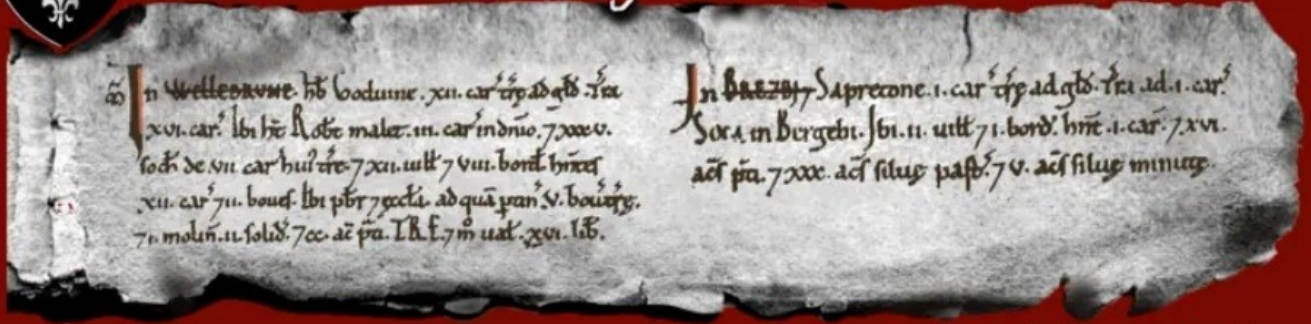 In Wellebrune. hb̄ boduine. xii. car̃ tr̄e ad gld̄. Tra
xvi. car̃. Ibi h̄t Robt̄ malet. iii. car̃ in dn̄io. 7 xxxv.
soch̄ de. vii. car̃ hui᷒ tr̄e. 7 xii. uilł 7 viii. bord̄ hn̄tes
xii. car̃ 7 ii. boues. Ibi pbr̄ 7 eccła. ad quā ptin̄. v. bou tr̄e.
7 i. molin̄. ii. solid̄. 7 cc. ac̄ p̄ti. T.R.E. 7 m̊ uał. xvi. lib̄.
In BREZBI 7 Sapretone. i. car̃ tr̄e ad gld̄. Tra ad. i. car̃.
Soca in Bergebi. Ibi. ii. uilł 7 i. bord̄. hn̄t. i. car̃. 7 xvi.
ac̄s p̄ti. 7 xxx. ac̄s siluę past̄. 7 v. ac̄s siluę minutę.